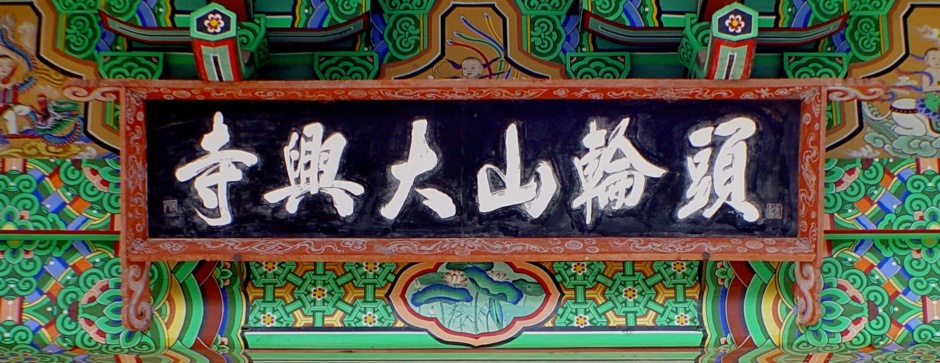 頭輪山大興寺